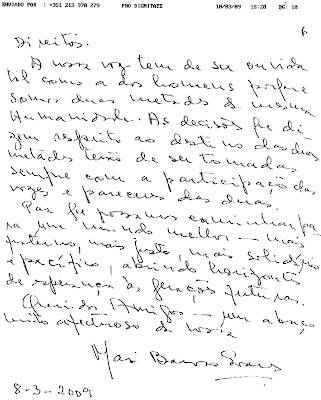 ENVIADO POR : +351 213 970 279 PRO DIGNITATE 10/03/09 18:28 Pg: 10
6
Direitos.
A nossa voz tem de ser ouvida
tal como a dos homens porque
somos duas metades da mesma
Humanidade. As decisões que di-
zem respeito ao destino das duas
metades terão de ser tomadas
sempre com a participação das
vozes e pareceres das duas.
Para que possamos caminhar pa-
ra um mundo melhor — mais
fraterno, mais justo, mais solidário
e pacífico, abrindo horizontes
de esperança às gerações futuras.
Queridos Amigos — um abraço
muito afectuoso da vossa
Maria Barroso Soares
8-3-2009